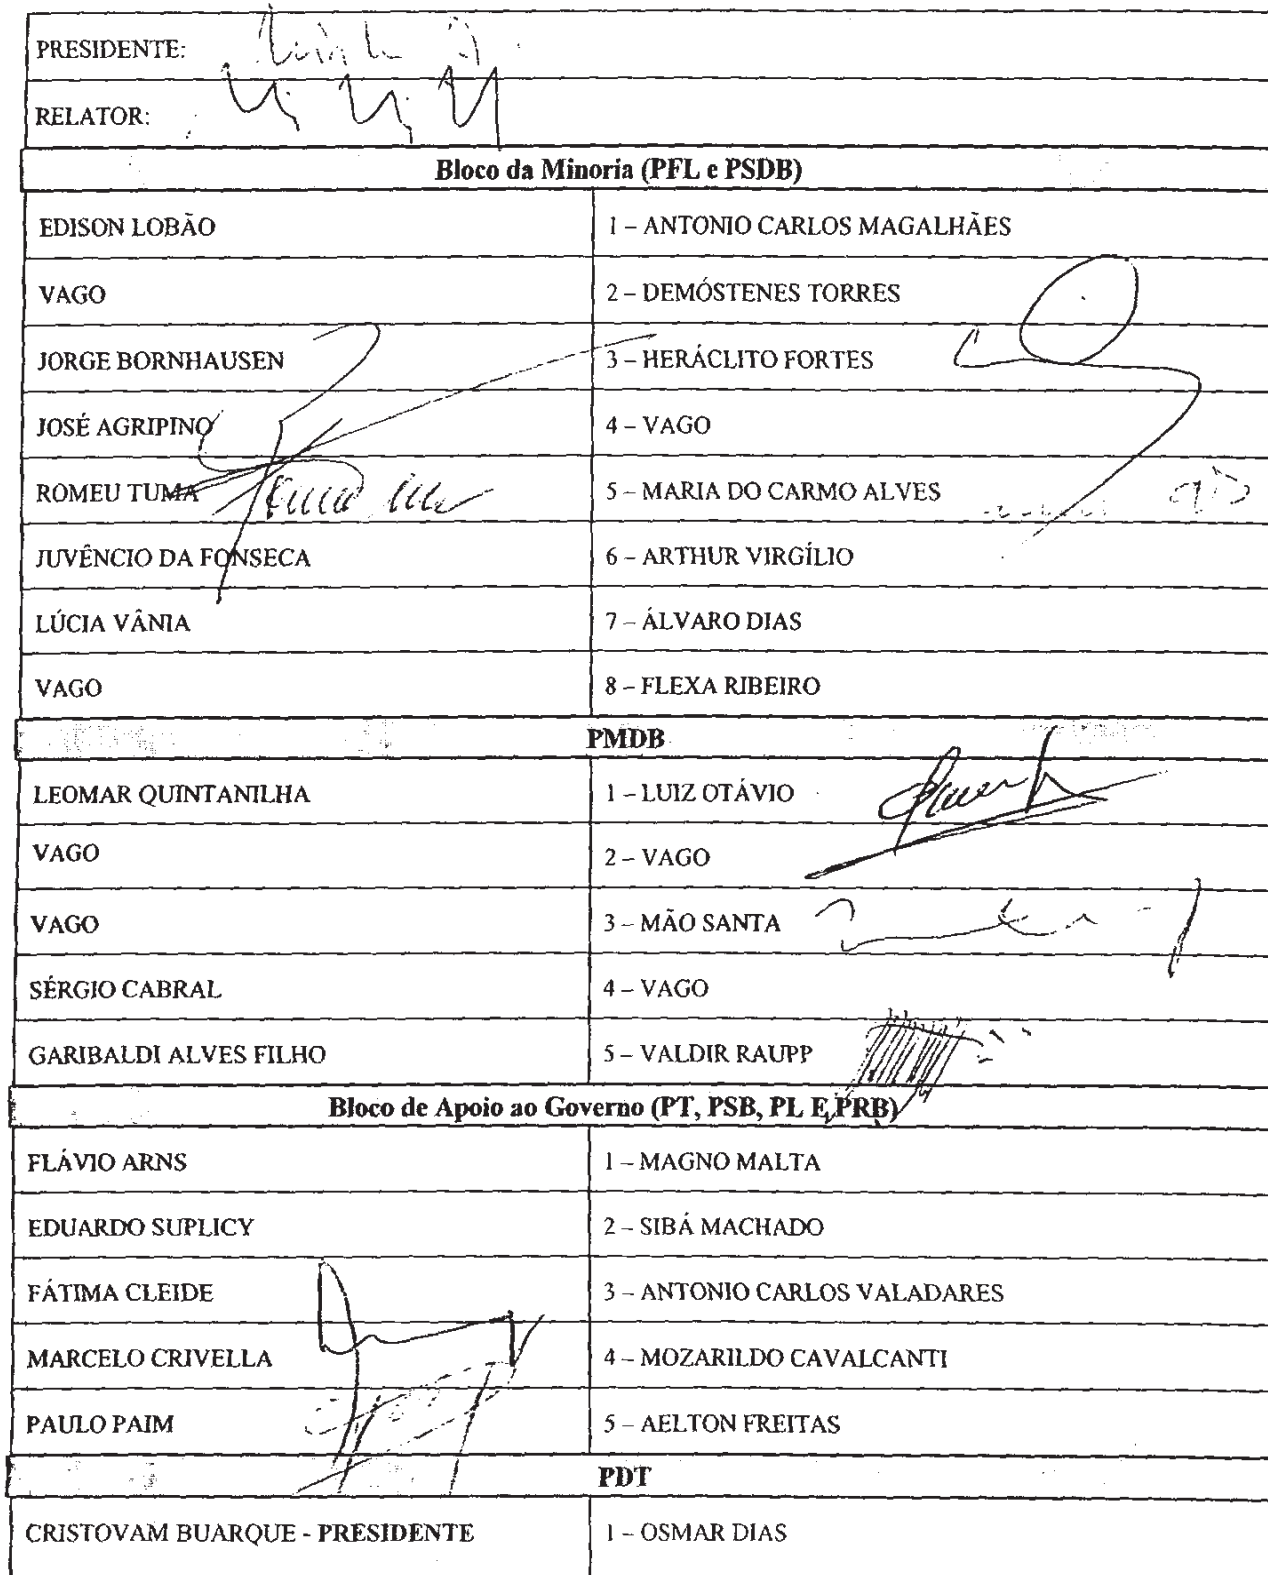 PRESIDENTE:
RELATOR:
Bloco da Minoria (PFL e PSDB)
EDISON LOBÃO 1 – ANTONIO CARLOS MAGALHÃES
VAGO 2 – DEMÓSTENES TORRES
JORGE BORNHAUSEN 3 – HERÁCLITO FORTES
JOSÉ AGRIPINO 4 – VAGO
ROMEU TUMA 5 – MARIA DO CARMO ALVES
JUVÊNCIO DA FONSECA 6 – ARTHUR VIRGÍLIO
LÚCIA VÂNIA 7 – ÁLVARO DIAS
VAGO 8 – FLEXA RIBEIRO
PMDB
LEOMAR QUINTANILHA 1 – LUIZ OTÁVIO
VAGO 2 – VAGO
VAGO 3 – MÃO SANTA
SÉRGIO CABRAL 4 – VAGO
GARIBALDI ALVES FILHO 5 – VALDIR RAUPP
Bloco de Apoio ao Governo (PT, PSB, PL E PRB)
FLÁVIO ARNS 1 – MAGNO MALTA
EDUARDO SUPLICY 2 – SIBÁ MACHADO
FÁTIMA CLEIDE 3 – ANTONIO CARLOS VALADARES
MARCELO CRIVELLA 4 – MOZARILDO CAVALCANTI
PAULO PAIM 5 – AELTON FREITAS
PDT
CRISTOVAM BUARQUE - PRESIDENTE 1 – OSMAR DIAS